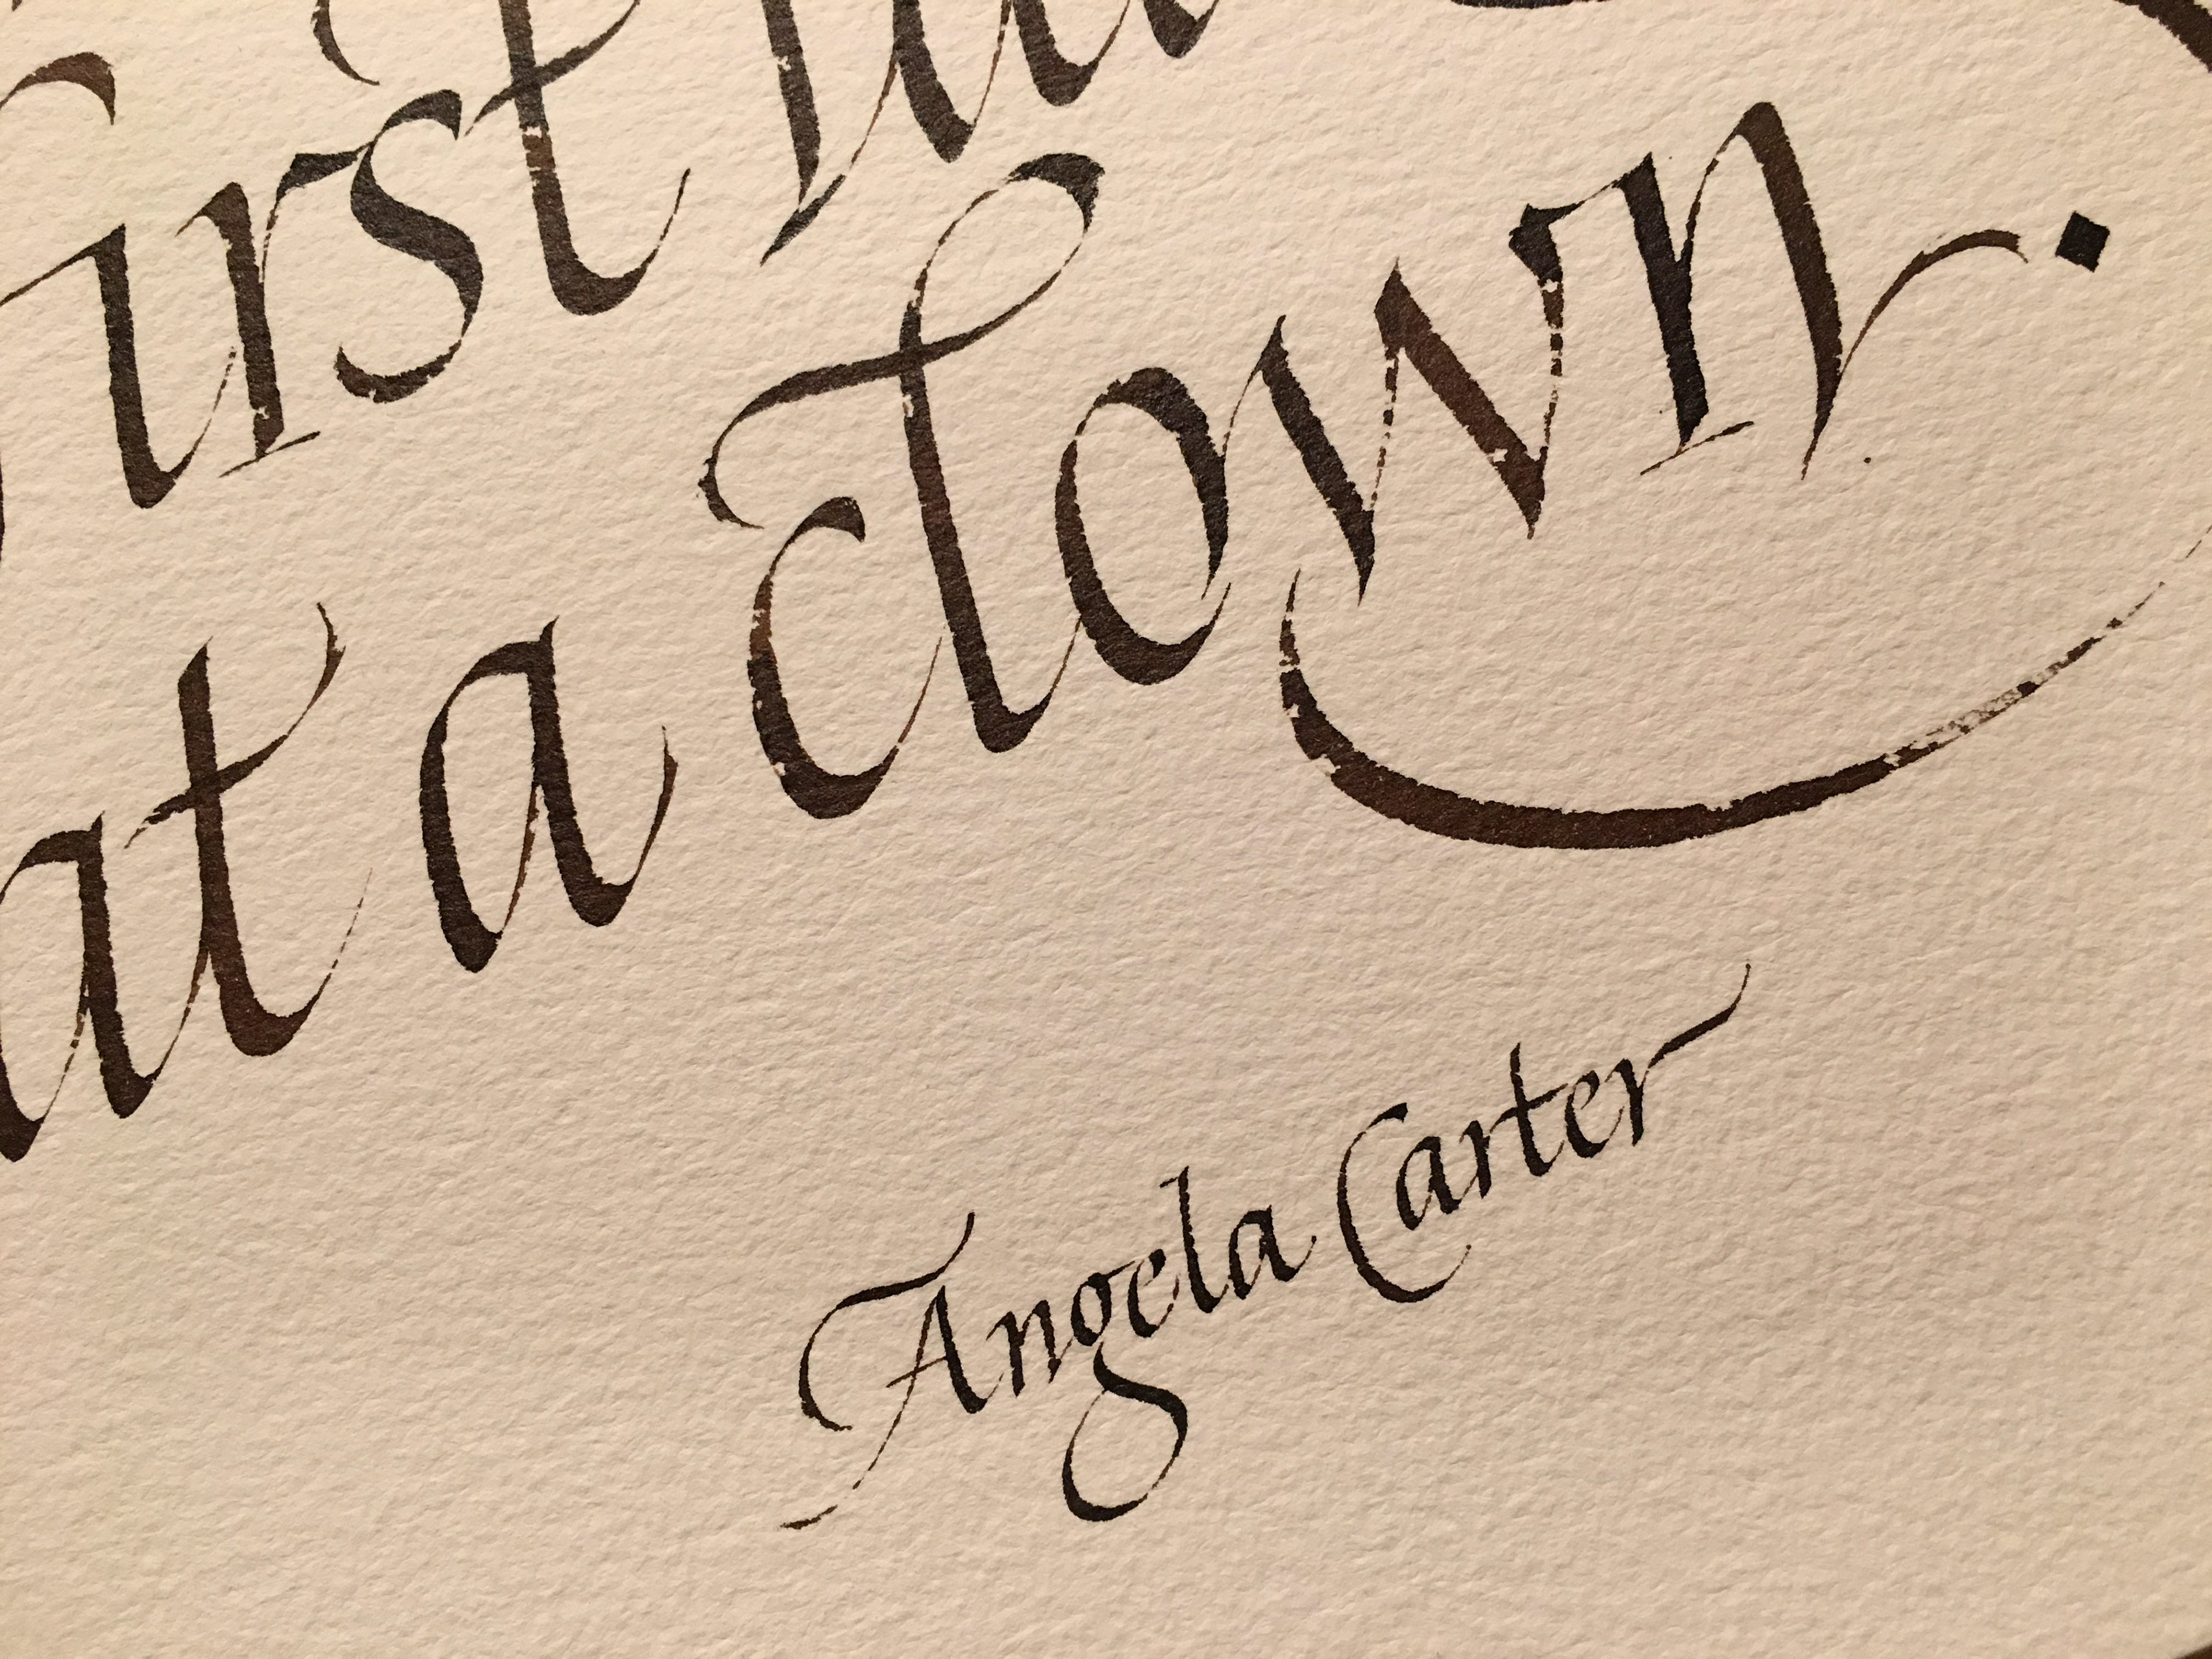 first
at a clown.
Angela Carter